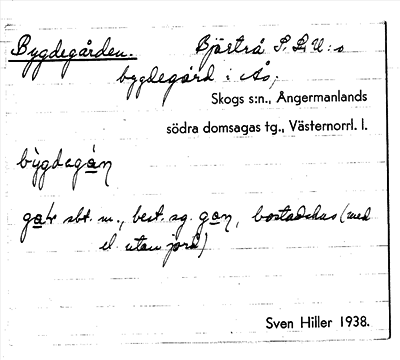 Bygdegården. Bjärtrå S. L. U:s
bygdegård i Ås,
Skogs s:n., Ångermanlands
södra domsagas tg., Västernorrl. l.
bỳgdega̲n
ga̲ɫ sbt. m., best. sg. ga̲n, bostadshus (med
el. utan jord)
Sven Hiller 1938.